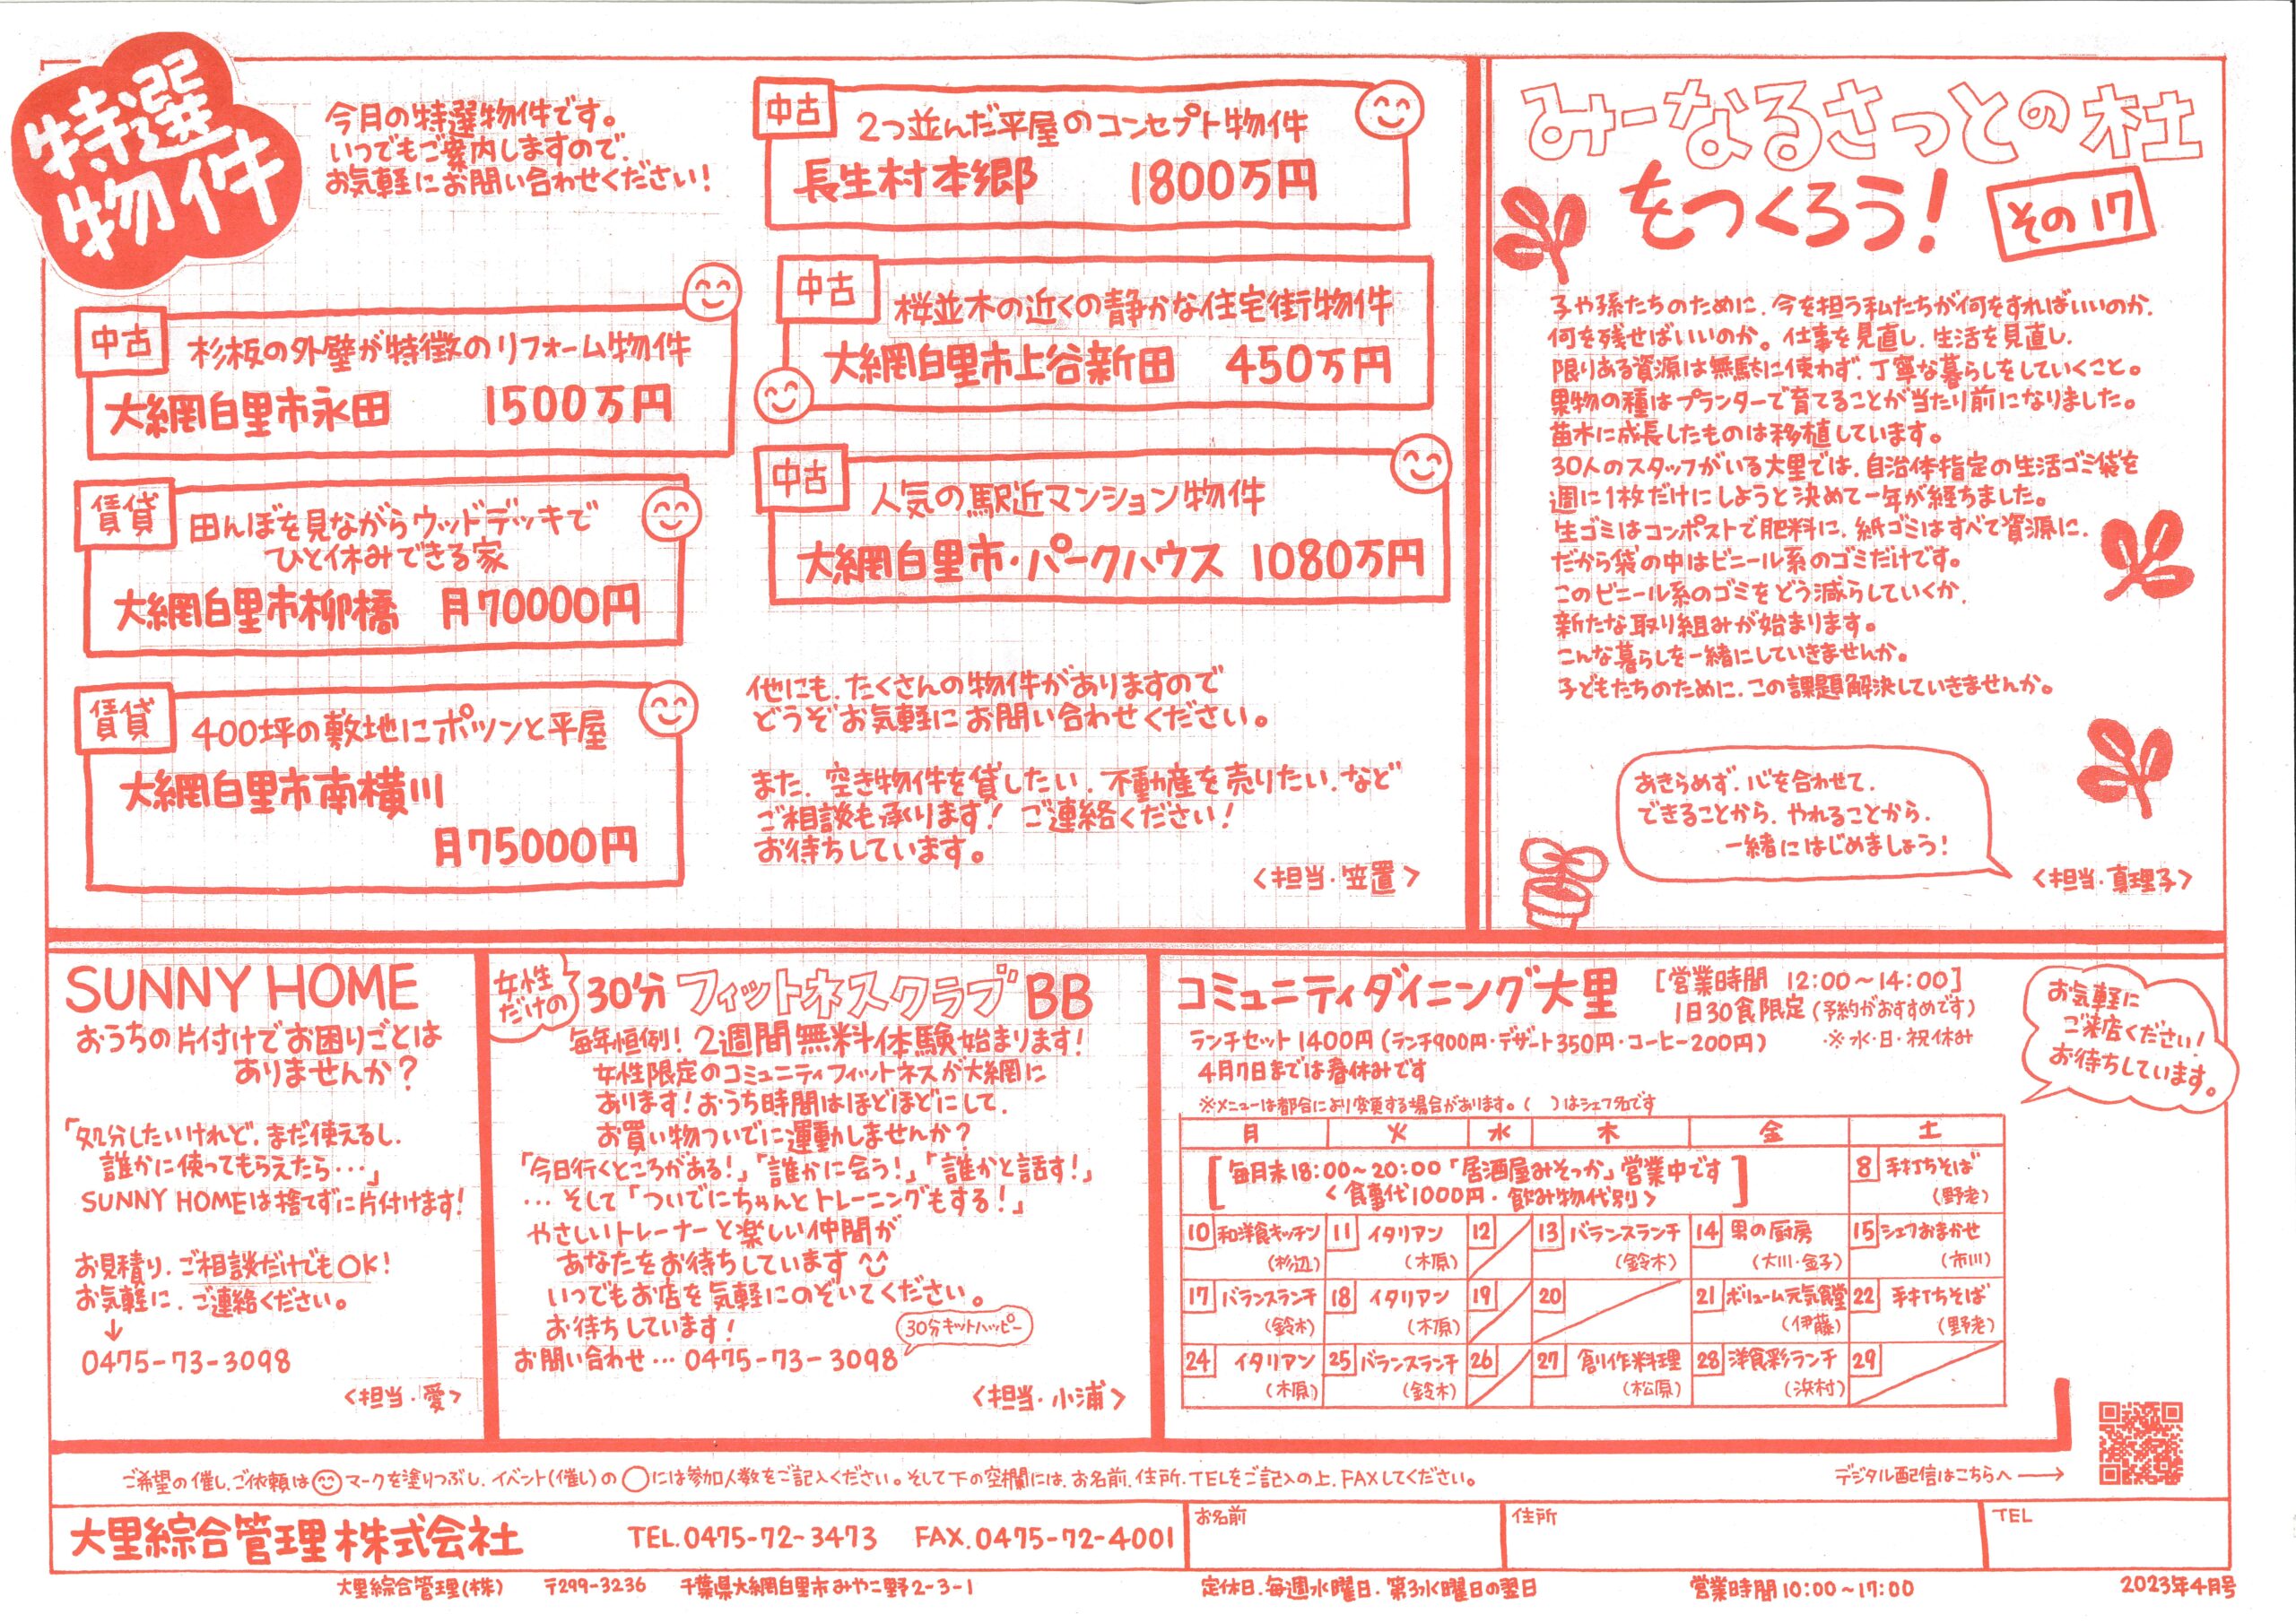 特選
物件
今月の特選物件です。
いつでもご案内しますので、
お気軽にお問い合わせください!
中古
杉板の外壁が特徴のリフォーム物件
大網白里市永田 1500万円
賃貸
田んぼを見ながらウッドデッキで
ひと休みできる家
大網白里市柳橋 月70000円
賃貸
400坪の敷地にポツンと平屋
大網白里市南横川
月75000円
中古
2つ並んだ平屋のコンセプト物件
長生村本郷 1800万円
中古
桜並木の近くの静かな住宅街物件
大網白里市上谷新田 450万円
中古
人気の駅近マンション物件
大網白里市・パークハウス 1080万円
他にも、たくさんの物件がありますので
どうぞお気軽にお問い合わせください。
また、空き物件を貸したい、不動産を売りたい、など
ご相談も承ります! ご連絡ください!
お待ちしています。
<担当・笠置>
みーなるさっとの杜
をつくろう!
その17
子や孫たちのために、今を担う私たちが何をすればいいのか、
何を残せばいいのか。仕事を見直し、生活を見直し、
限りある資源は無駄に使わず、丁寧な暮らしをしていくこと。
果物の種はプランターで育てることが当たり前になりました。
苗木に成長したものは移植しています。
30人のスタッフがいる大里では、自治体指定の生活ゴミ袋を
週に1枚だけにしようと決めて一年が経ちました。
生ゴミはコンポストで肥料に、紙ゴミはすべて資源に、
だから袋の中はビニール系のゴミだけです。
このビニール系のゴミをどう減らしていくか、
新たな取り組みが始まります。
こんな暮らしを一緒にしていきませんか。
子どもたちのために、この課題解決していきませんか。
あきらめず、心を合わせて、
できることから、やれることから、
一緒にはじめましょう!
<担当・真理子>
SUNNY HOME
おうちの片付けでお困りごとは
ありませんか?
「処分したいけれど、まだ使えるし、
誰かに使ってもらえたら…」
SUNNY HOMEは捨てずに片付けます!
お見積り、ご相談だけでもOK!
お気軽に、ご連絡ください。
↓
0475-73-3098
<担当・愛>
女性
だけの
30分 フィットネスクラブBB
毎年恒例! 2週間無料体験始まります!
女性限定のコミュニティフィットネスが大網に
あります!おうち時間はほどほどにして、
お買い物ついでに運動しませんか?
「今日行くところがある!」「誰かに会う!」「誰かと話す!」
…そして「ついでにちゃんとトレーニングもする!」
やさしいトレーナーと楽しい仲間が
あなたをお待ちしています
いつでもお店を気軽にのぞいてください。
お待ちしています!
30分キットハッピー
お問い合わせ…0475-73-3098
<担当・小浦>
コミュニティダイニング大里 [営業時間 12:00~14:00]
1日30食限定(予約がおすすめです)
ランチセット1400円(ランチ900円・デザート350円・コーヒー200円) ※水・日・祝休み
4月7日までは春休みです
※メニューは都合により変更する場合があります。( )はシェフ名です
お気軽に
ご来店ください!
お待ちしています。
月 火 水 木 金 土
[毎月末18:00~20:00「居酒屋みそっか」営業中です
<食事代1000円・飲み物代別>]
8 手打ちそば
(野老)
10 和洋食キッチン 11 イタリアン 12 13 バランスランチ 14 男の厨房 15 シェフおまかせ
(杉辺) (木原) (鈴木) (大川・金子) (市川)
17 バランスランチ 18 イタリアン 19 20 21 ボリューム元気食堂 22 手打ちそば
(鈴木) (木原) (伊藤) (野老)
24 イタリアン 25 バランスランチ 26 27 創作料理 28 洋食彩ランチ 29
(木原) (鈴木) (松原) (浜村)
ご希望の催し、ご依頼は マークを塗りつぶし、イベント(催し)の○には参加人数をご記入ください。そして下の空欄には、お名前、住所、TELをご記入の上、FAXしてください。
デジタル配信はこちらへ→
大里綜合管理株式会社 TEL.0475-72-3473 FAX.0475-72-4001
お名前 住所 TEL
大里綜合管理(株) 〒299-3236 千葉県大網白里市みやこ野2-3-1 定休日、毎週水曜日、第3水曜日の翌日 営業時間10:00~17:00 2023年4月号